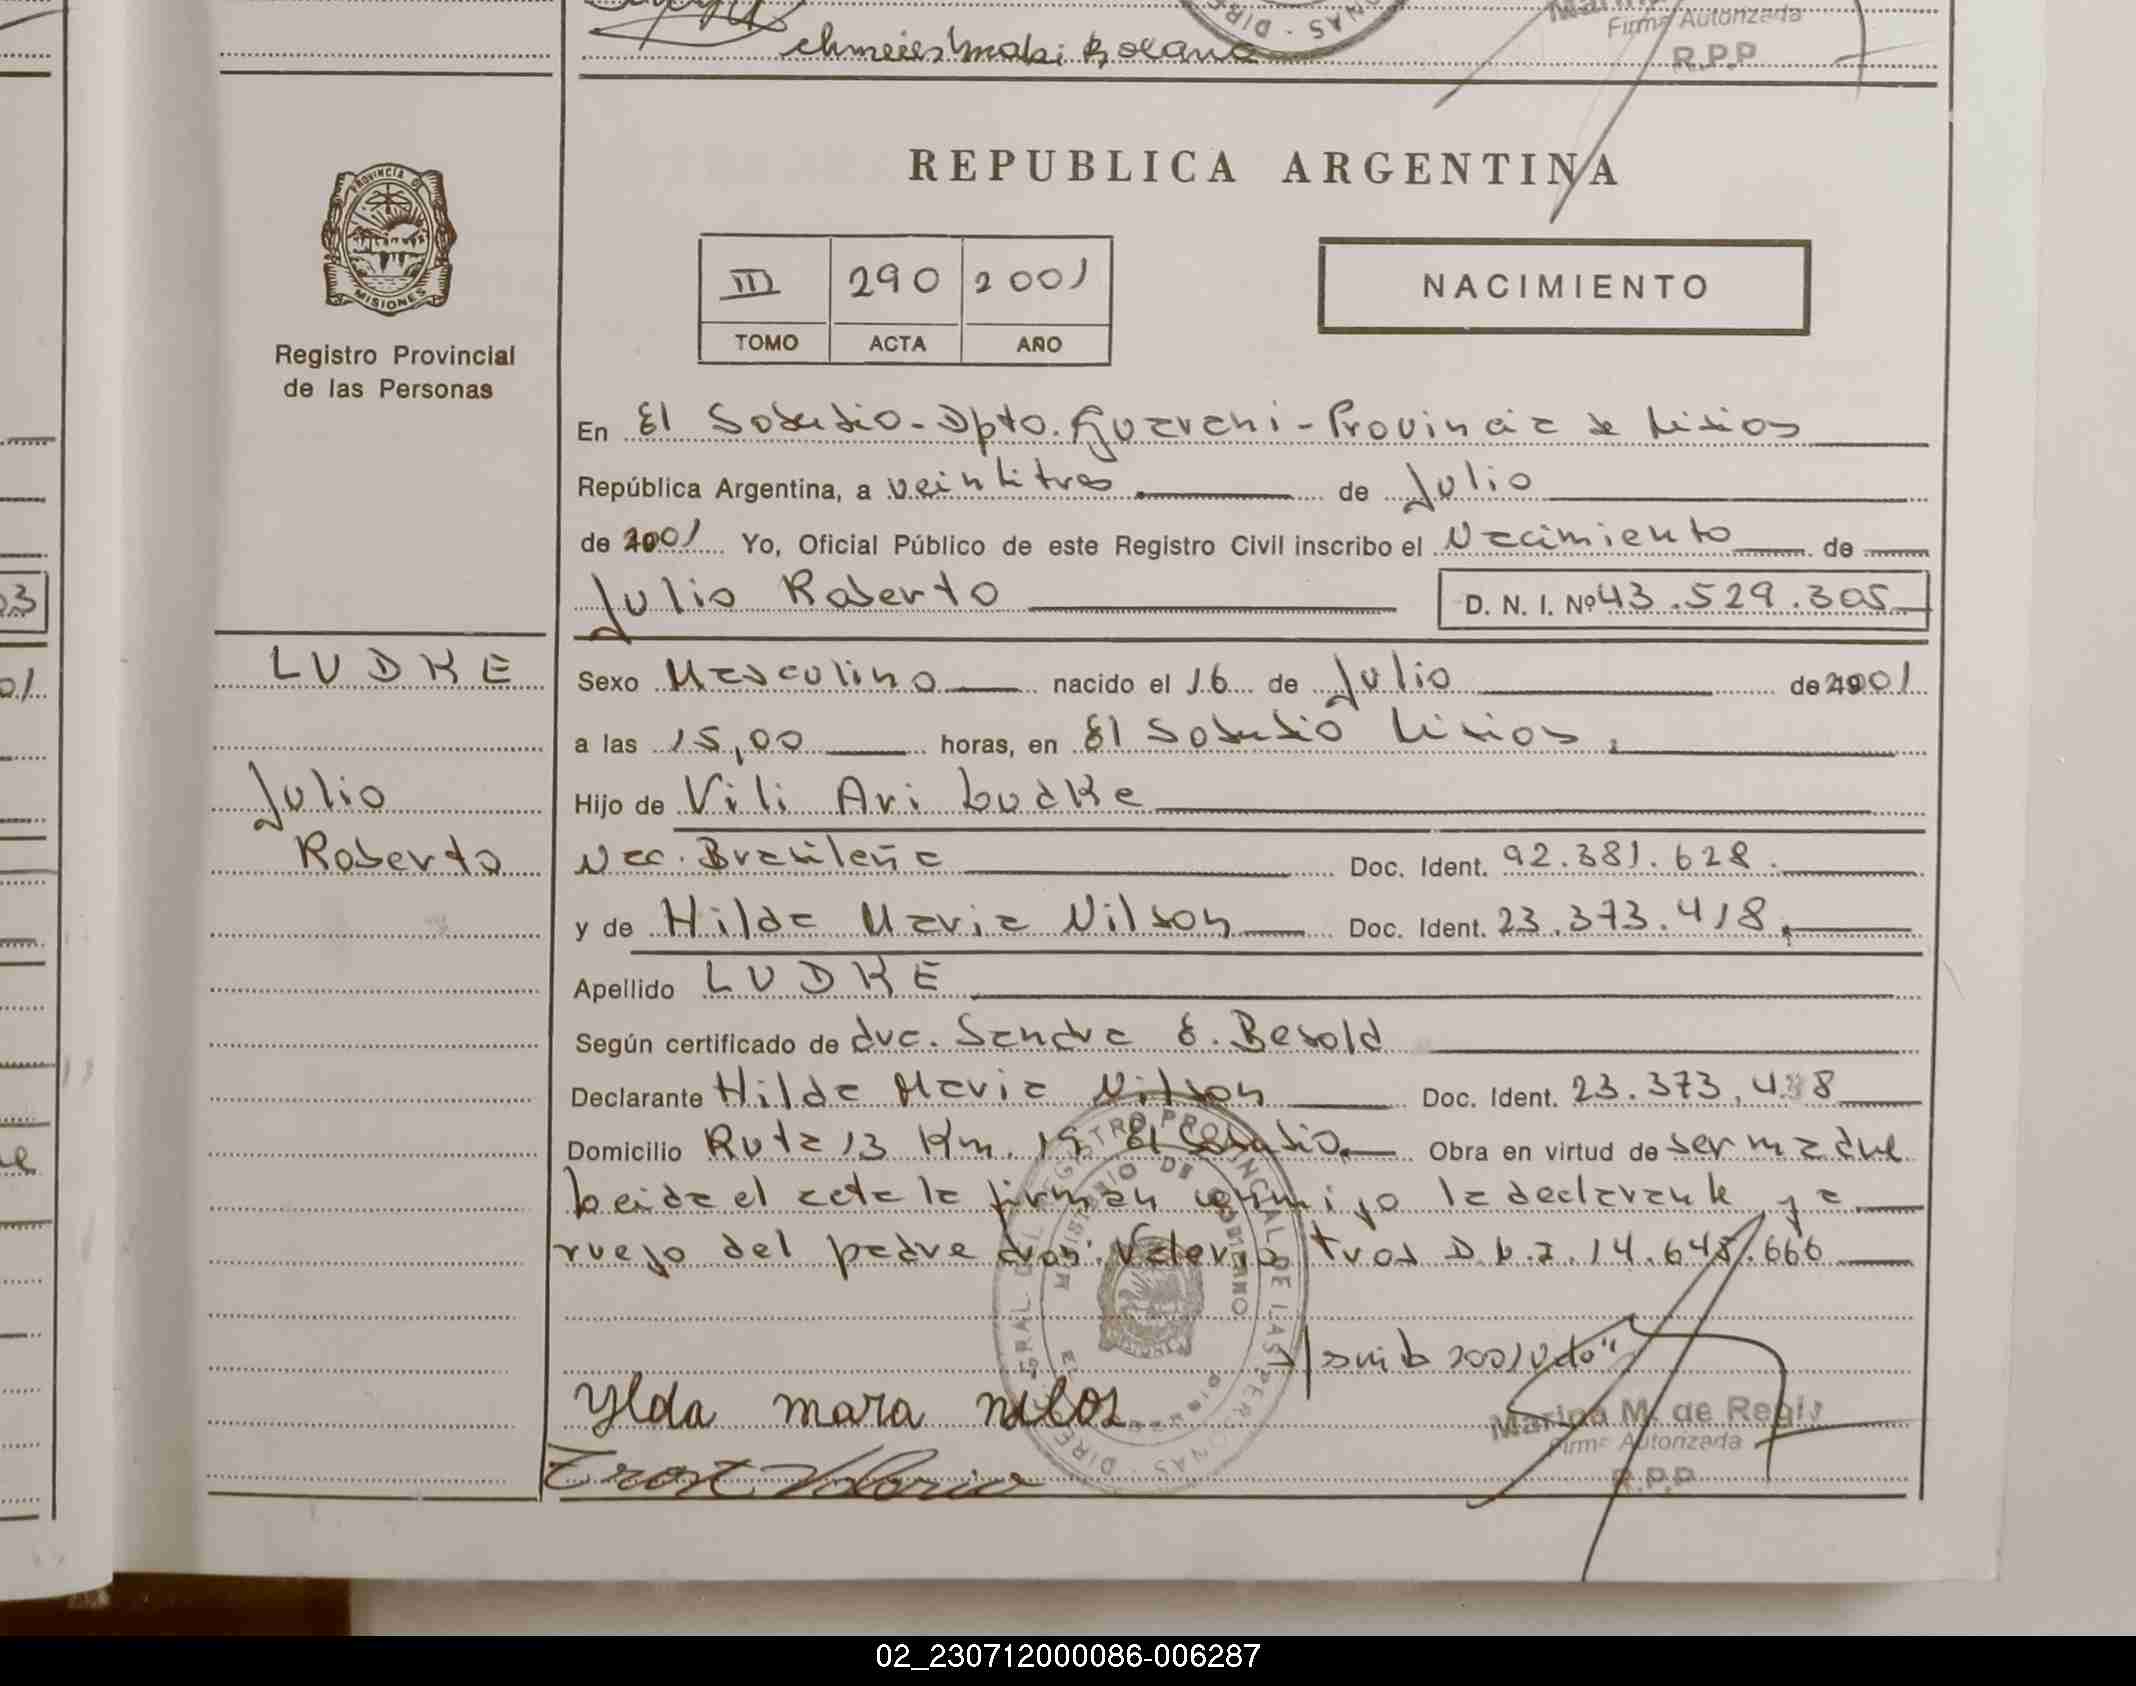 chmeiesNmaki Roxana
Firma Autorizada
R.P.P
PROVINCIA DE
MISIONES
Registro Provincial
de las Personas
REPUBLICA ARGENTINA
III 290 2001
TOMO ACTA AÑO
NACIMIENTO
En El Soberbio - Dpto. Guarani - Provincia de Misiones
República Argentina, a veintitres de Julio
de 2001 Yo, Oficial Público de este Registro Civil inscribo el Nacimiento de
Julio Roberto D. N. I. Nº 43.529.305
LUDKE
Julio
Roberto
Sexo Masculino nacido el 16 de Julio de 2001
a las 15,00 horas, en El Soberbio Misiones
Hijo de Vili Ari Ludke
Nac. Brasileña Doc. Ident. 92.381.628
y de Hilda Maria Nilson Doc. Ident. 23.373.418
Apellido LUDKE
Según certificado de dra. Sandra E. Besold
Declarante Hilda Maria Nilson Doc. Ident. 23.373.418
Domicilio Ruta 13 Km. 19 El Soberbio Obra en virtud de ser madre
Leida el acta la firman conmigo la declarante y a
ruego del padre don: Valerio Trost D.N.I. 14.648.666
Ylda mara
Trost Valerio
Marina M. de Regis
Firma Autorizada
R.P.P
REGISTRO PROVINCIAL DE LAS PERSONAS
MINISTERIO DE GOBIERNO
02_230712000086-006287